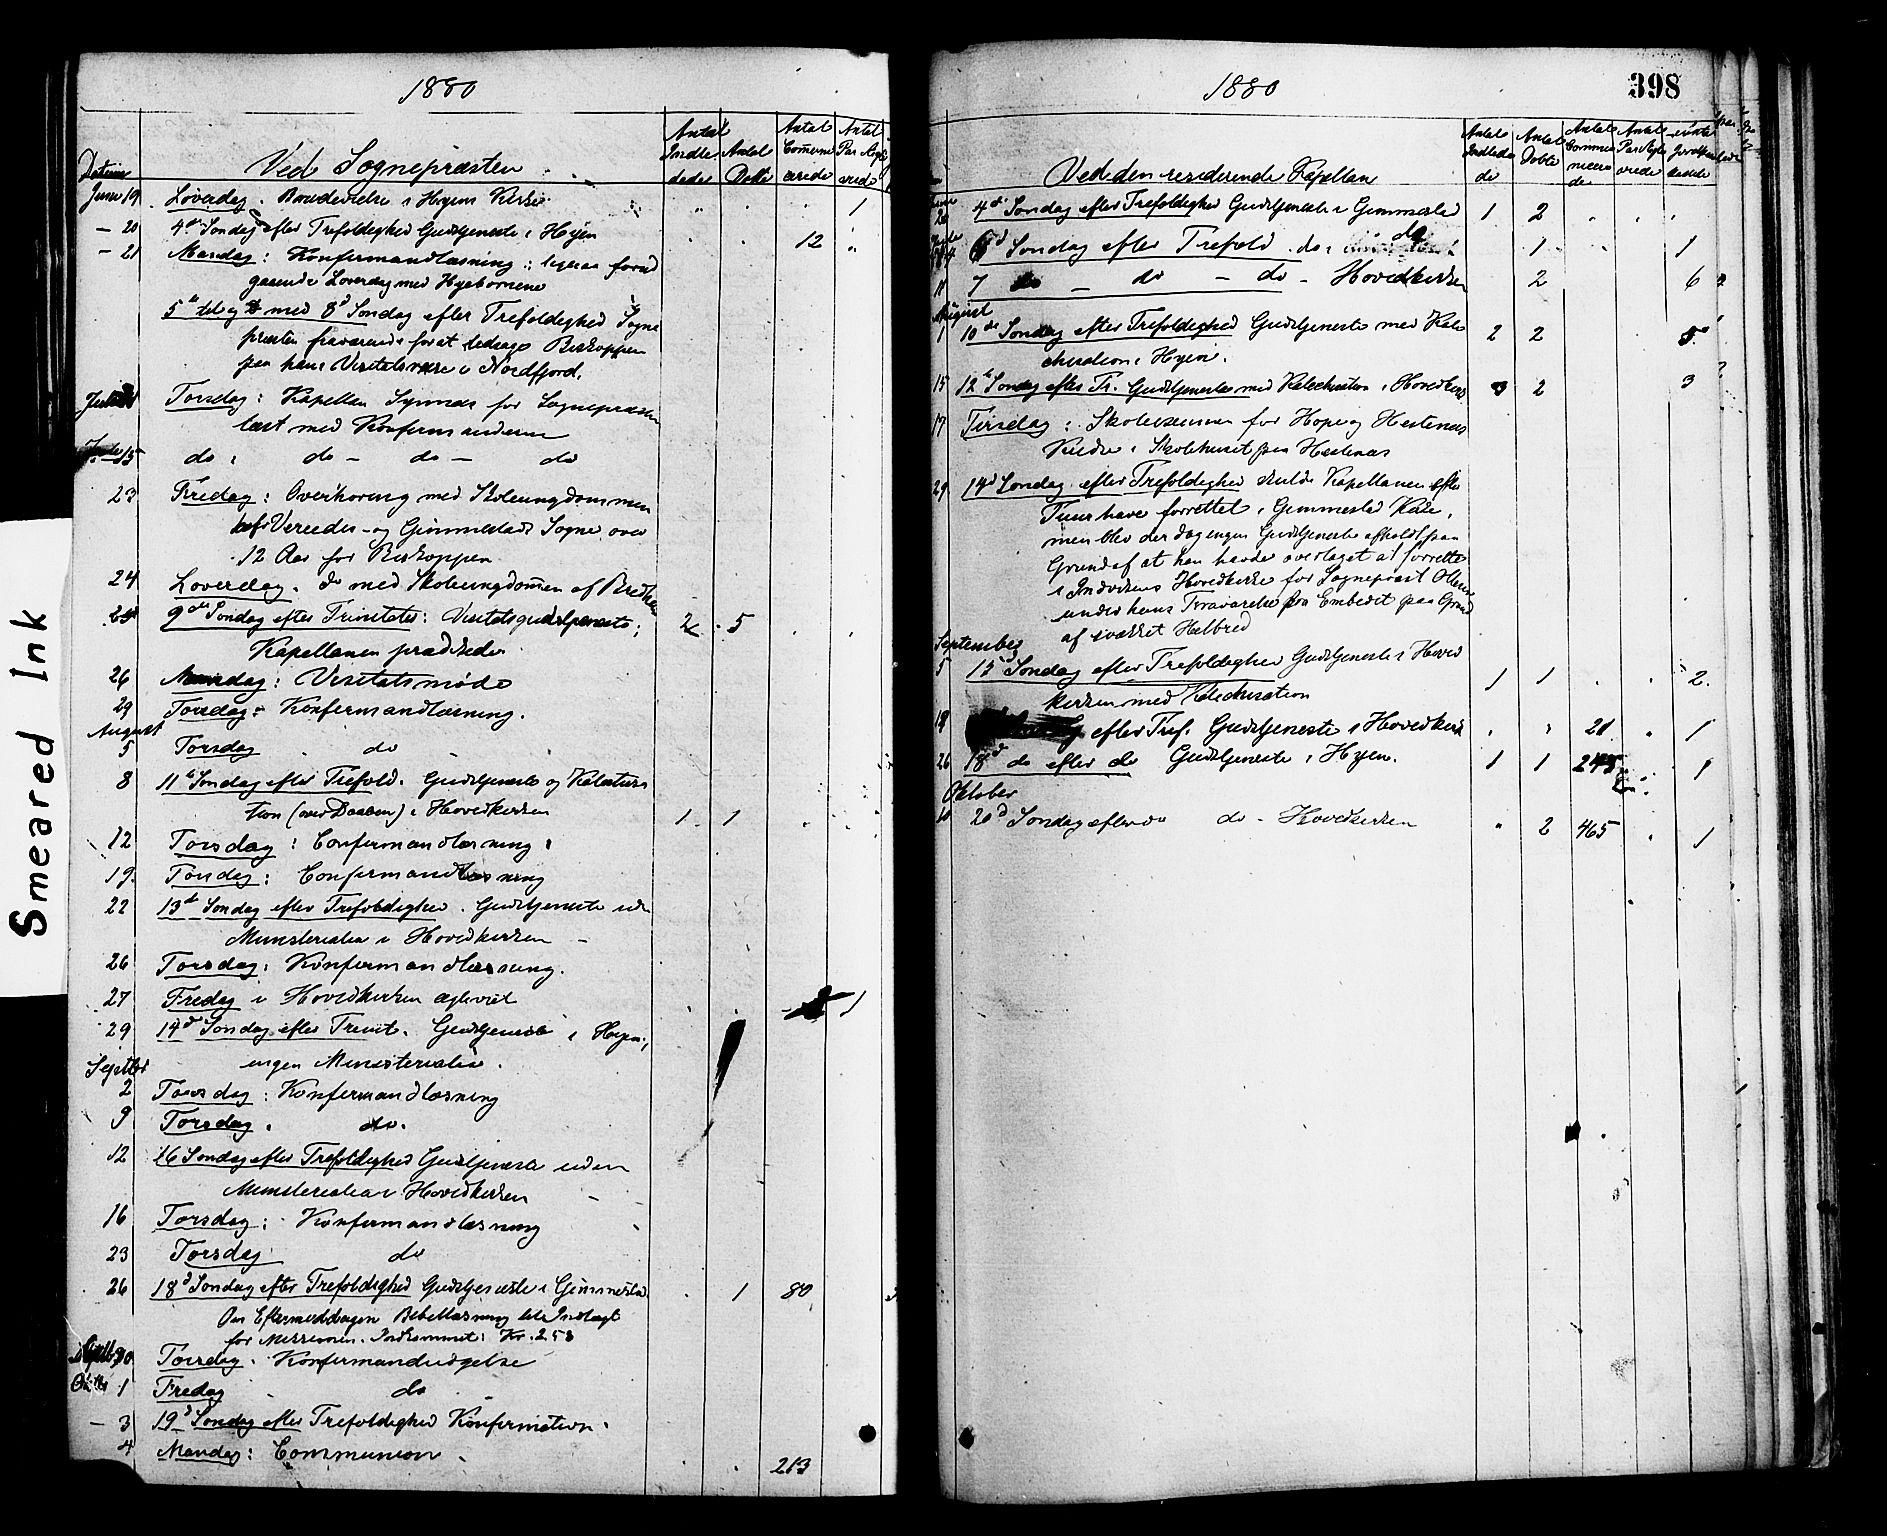 Smeared Ink
1880
Datum
Ved Sognepræsten
Antal Indledede
Antal Døbte
Antal Comunicerede
Antal Par
Juni 19 Løverdag. Brudevielse i Hyens Kirke 1
- 20 4de Søndag efter Trefoldighed Gudstjeneste i Hyen 12
- 21 Mandag: Konfirmandlæsning; ligesaa foregaaende Løverdag med Hyebørnene
5te til og med 8d Søndag efter Trefoldighed Sogne
præsten fraværende for at ledsage Biskoppen
paa hans Visitatsreise i Nordfjord.
Torsdag: Kapellan Synnes for Sognepræsten
læst med Konfirmanderne
15 do : do - do - do
23 Fredag: Overhøring med Skoleungdommen
af Vereide- og Gimmestads Sogne over
12 Aar for Biskoppen
24 Løverdag. do med Skoleungdom̄en af
25 9de Søndag efter Trinitatis: Visitatsgudstjeneste; 2 5
Kapellanen prædikede
26 Mandag: Visitatsmøde
29 Torsdag: Konfirmandlæsning.
August
5 Torsdag do
8 11te Søndag efter Trefold. Gudstjeneste og Katekisa
tion (over Daaben) i Hovedkirken 1 1
12 Torsdag: Confirmandlæsning.
19. Torsdag: Confirmandlæsning
22 13de Søndag efter Trefoldighed. Gudstjeneste uden
Ministerialia i Hovedkirken -
26 Torsdag: Konfirmandlæsning.
27 Fredag i Hovedkirken ægteviet 1
29 14d Søndag efter Trinit. Gudstjeneste i Hyen;
ingen Ministerialia.
Septbr
2 Torsdag: Konfirmandlæsning
9 Torsdag. do.
12 16 Søndag efter Trefoldighed Gudstjeneste uden
Ministerialia i Hovedkirken -
16 Torsdag: Konfirmandlæsning
23 Torsdag do
26 18d Søndag efter Trefoldighed Gudstjeneste i Gimmestad 1 80
Om Eftermiddagen Bibellæsning til Indtægt
for Missionen. Indkommet: Kr. 2 58
Septbr 30 Torsdag. Konfirmandudgelse
Oktbr 1 Fredag do
- 3 19d Søndag efter Trefoldighed Konfirmation.
4 Mandag: Communion. 213
1880
398
Ved den residerende Kapellan
Antal Indledede
Antal Døbte
Antal Communicerede
Antal Par
20 4de Søndag efter Trefoldighed Gudstjeneste i Gimmestad 1 2
4 6d Søndag efter Trefold. do i do 1 1
11 7 do - do - do - Hovedkirken 2 6
August
1 10de Søndag efter Trefoldighed Gudstjeneste med Kate
chisation i Hyen. 2 2 5
15 12te Søndag efter Tr. Gudstjeneste med Katechisation i Hovedkirk 3 2 3
17 Tirsdag: Skoleexamen for Hope og Hestenæs
Kredse i Skolehuset paa Hestenæs
29 14d Søndag efter Trefoldighed skulde Kapellanen efter
Tuur have forrettet i Gimmestad Kirke,
men blev der dog ingen Gudstjeneste afholdt paa
Grund af at han havde overtaget at forrette
i Indvikens Hovedkirke for Sogneprest
under hans Fraværelse fra Embedet paa Grund
af svækket Helbred
September
5 15d Søndag efter Trefoldighed Gudstjeneste i Hoved
kirken med Katechisation 1 1 2.
efter Tref. Gudstjeneste i Hovedkirk 21 1
26 18d do efter do Gudstjeneste i Hyen. 1 1 1
Oktober
10 20d Søndag efter do do - Hovedkirken 2 465 1